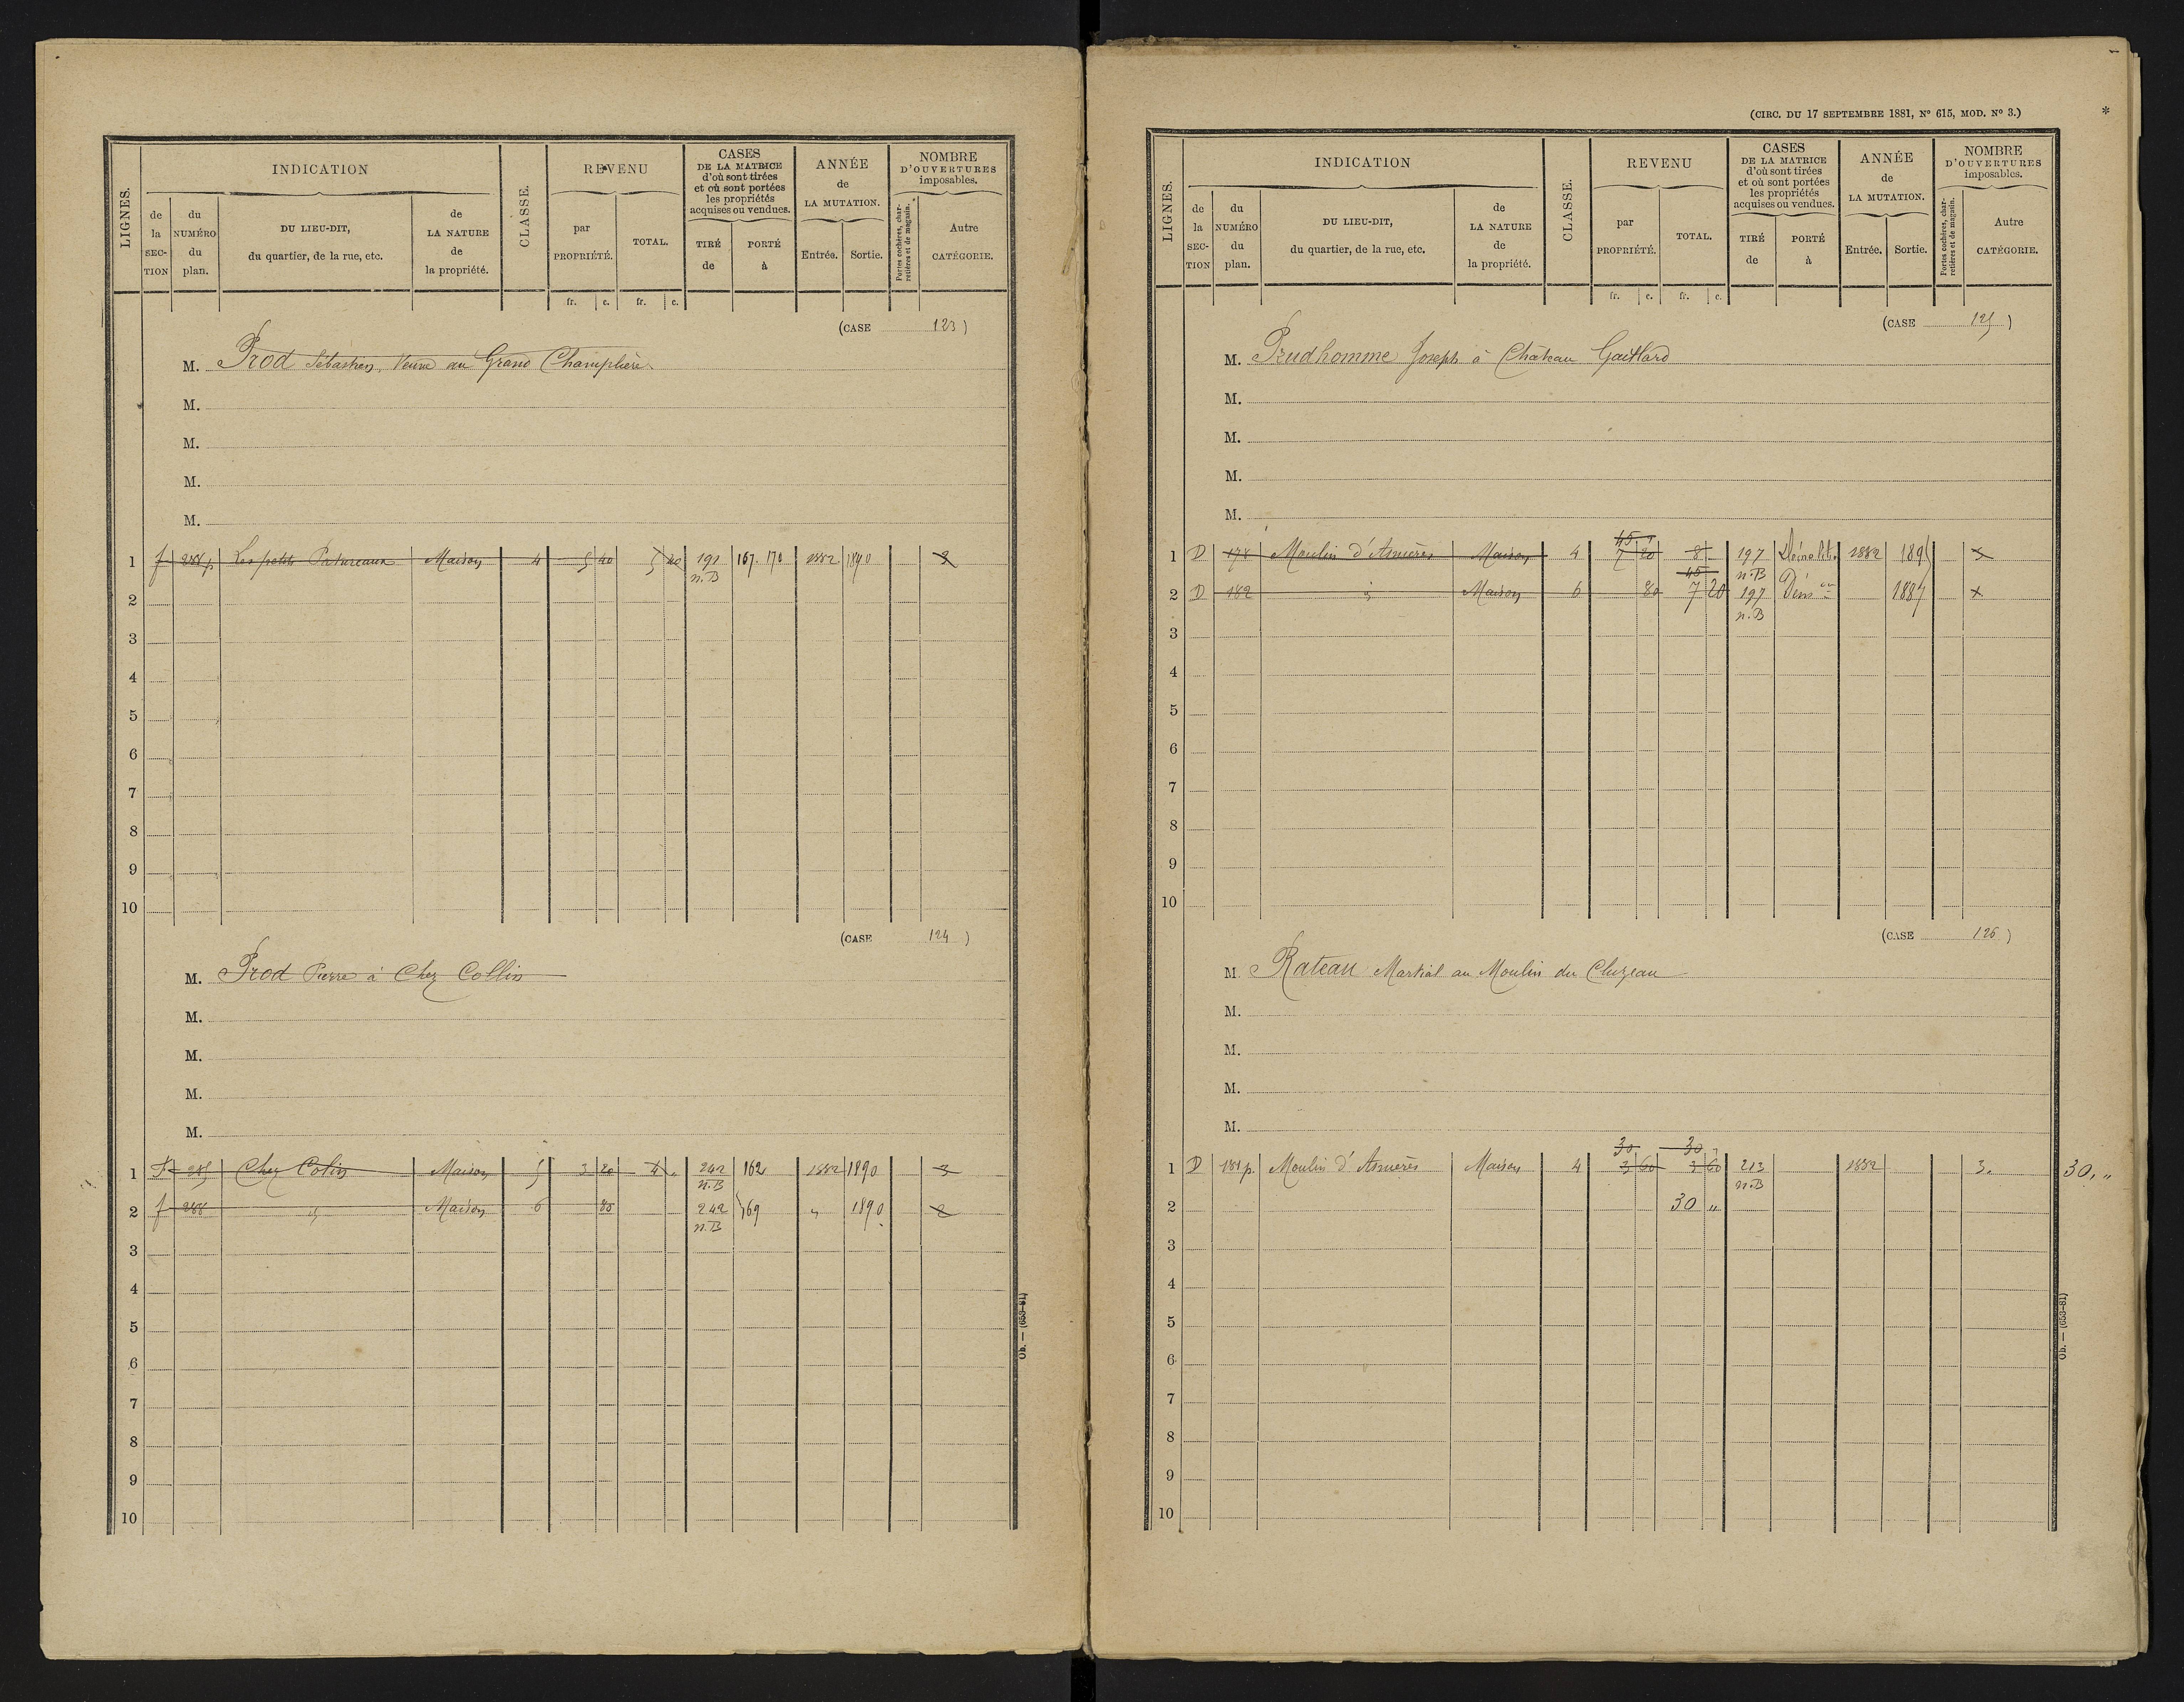 LIGNES.
INDICATION
CLASSE.
REVENU
CASES
DE LA MATRICE
d'où sont tirées
et où sont portées
les propriétés
acquises ou vendues.
ANNÉE
de
LA MUTATION.
NOMBRE
D'OUVERTURES
imposables.
de la SECTION
du NUMÉRO du plan.
DU LIEU-DIT,
du quartier, de la rue, etc.
de LA NATURE de la propriété.
par PROPRIÉTÉ.
TOTAL.
TIRÉ de
PORTÉ à
Entrée.
Sortie.
Portes cochères, charretières et de magasin.
Autre CATÉGORIE.
fr. c. fr. c.
(CASE 123)
M. Prod Sébastien, Veuve au Grand Champlière
M.
M.
M.
M.
1 f 288 p. Les petits Patureaux Maison 4 5 40 5 40 191 167. 170 1882 1890 2
n.B
2
3
4
5
6
7
8
9
10
(CASE 124)
M. Prod Pierre à Chez Collin
M.
M.
M.
M.
1 F 285 Chez Colin Maison 5 3 20 4 " 242 162 1882 1890 3
n.B
2 f 288 id Maison 6 80 242 169 " 1890 2
n.B
3
4
5
6
7
8
9
10
Ob. — (653-81)
(CIRC. DU 17 SEPTEMBRE 1881, Nº 615, MOD. Nº 3.)
*
LIGNES.
INDICATION
CLASSE.
REVENU
CASES
DE LA MATRICE
d'où sont tirées
et où sont portées
les propriétés
acquises ou vendues.
ANNÉE
de
LA MUTATION.
NOMBRE
D'OUVERTURES
imposables.
de la SECTION
du NUMÉRO du plan.
DU LIEU-DIT,
du quartier, de la rue, etc.
de LA NATURE de la propriété.
par PROPRIÉTÉ.
TOTAL.
TIRÉ de
PORTÉ à
Entrée.
Sortie.
Portes cochères, charretières et de magasin.
Autre CATÉGORIE.
fr. c. fr. c.
(CASE 125)
M. Prudhomme Joseph à Château Gaillard
M.
M.
M.
M.
45 "
1 D 178 Moulin d'Asnières Maison 4 7 20 8 197 Démolit. 1882 1895
45 n.B
2 D 182 id Maison 6 80 7 20 197 1887
n.B
3
4
5
6
7
8
9
10
(CASE 126)
M. Rateau Martial au Moulin du Cluzeau
M.
M.
M.
M.
30 30 "
1 D 181 p. Moulin d'Asnières Maison 4 3 60 3 60 213 1882 3. 30, "
n.B
2 30 "
3
4
5
6
7
8
9
10
Ob. — (653-81)